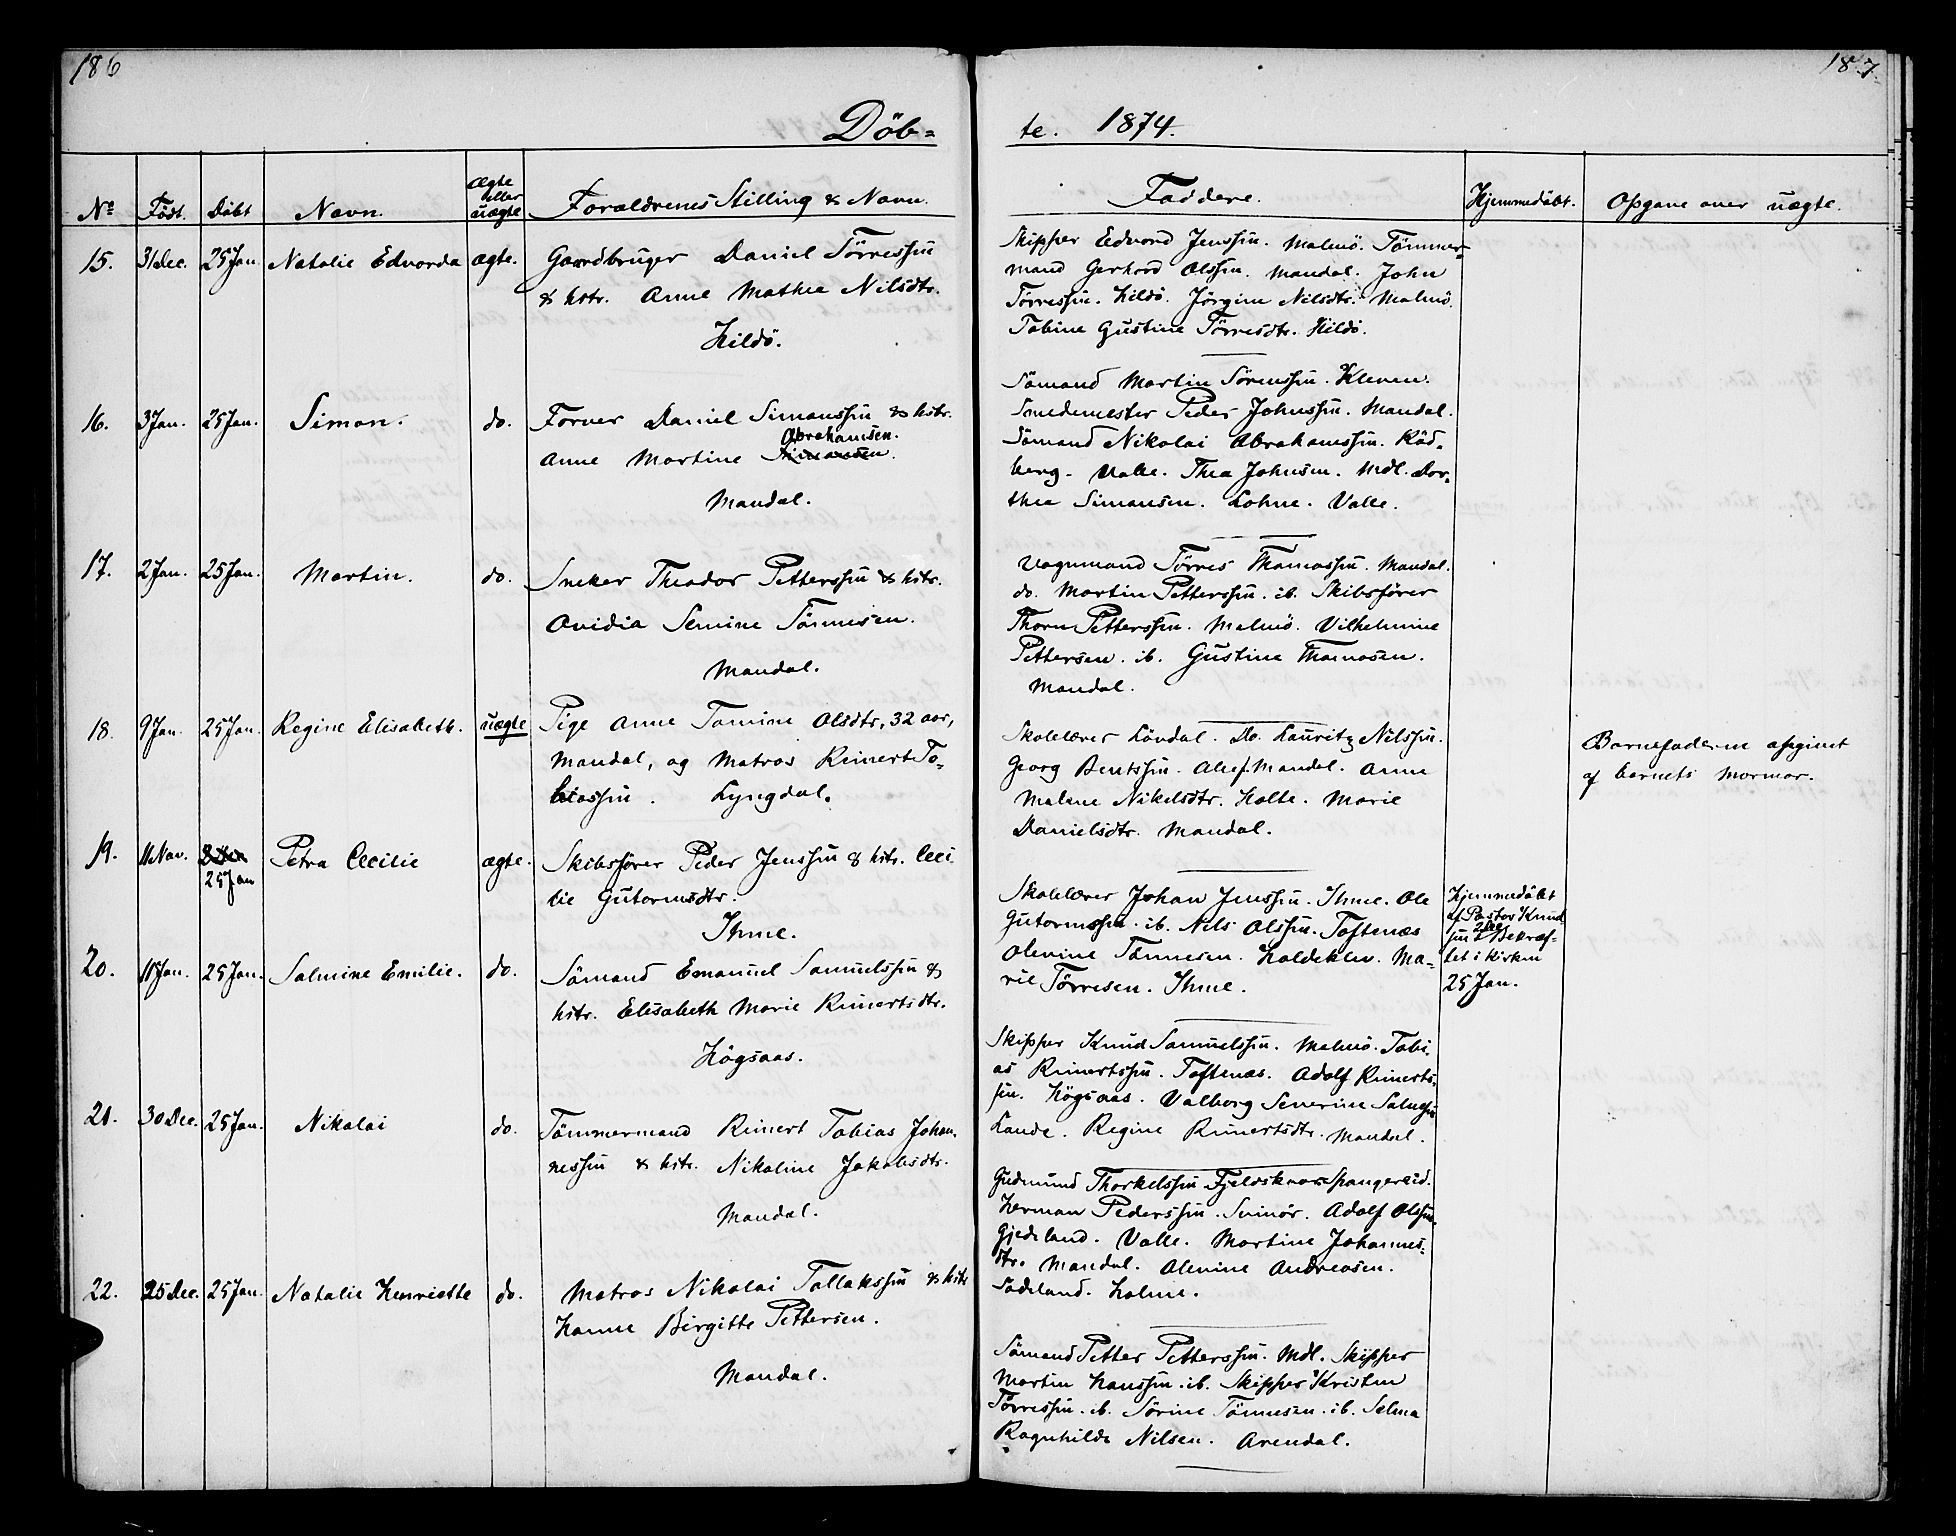 186
187
Döb-
te. 1874.
No
Født.
Döbt
Navn.
Ægte
eller
uægte
Forældrenes Stilling & Navn.
Faddere.
Hjemmedöbt.
Opgave over uægte.
15. 31 Dec. 25 Jan. Natalie Edvarda ægte. Gaardbruger Daniel Törressen
& hstr. Anne Mathea Nilsdtr.
Hildö.
Skipper Edvard Jenssen. Malmö. Tömmer-
mand Gerhard Olssen. Mandal. John
Törressen. Hildö. Jörgine Nilsdtr. Malmö.
Tobine Gustine Törresdtr. Hildö.
16. 3 Jan. 25 Jan. Simon. do. Farver Daniel Simonssen & hstr.
Abrahamsen.
Anne Martine Simonsen.
Mandal.
Sömand Martin Sörenssen. Kleven.
Smedemester Peder Johnssen. Mandal.
Sömand Nikolai Abrahamssen. Röd-
berg. Valle. Thea Johnsen. Mdl. Dor-
thea Simonsen. Lohne. Valle.
17. 2 Jan. 25 Jan. Martin. do. Sneker Theodor Petterssen & hstr.
Ovidia Semine Tönnesen.
Mandal.
Vognmand Törres Thomassen. Mandal.
do. Martin Petterssen. ib. Skibsförer
Thorn Petterssen. Malmö. Vilhelmine
Pettersen. ib. Gustine Thomasen.
Mandal.
18. 9 Jan. 25 Jan. Regine Elisabeth. uægte Pige Anne Tomine Olsdtr, 32 aar,
Mandal, og Matros Reinert To-
biassen. Lyngdal.
Skolelærer Lövdal. Do. Lauritz Nilssen.
Georg Bentssen. Mandal. Anne
Malene Nikelsdtr. Holte. Marie
Danielsdtr. Mandal.
Barnefaderen opgivet
af barnets Mormor.
19. 11 Nov. 25 Jan Petra Cecilie ægte. Skibsförer Peder Jenssen & hstr. Ceci-
lie Gutormsdtr.
Ihme.
Skolelærer Johan Jenssen. Ihme. Ole
Gutormssen. ib. Nils Olssen. Toftenæs
Olevine Tönnesen. Holdeklev. Ma-
rie Törresen. Ihme.
Hjemmedöbt
af Pastor Knud
sen Bekræf-
tet i Kirken
25 Jan.
20. 11 Jan. 25 Jan. Salmine Emilie. do. Sömand Emanuel Samuelssen &
hstr. Elisabeth Marie Reinertsdtr.
Högsaas.
Skipper Knud Samuelssen. Malmö. Tobi-
as Reinertssen. Toftenæs. Adolf Reinerts-
sen. Högsaas. Valborg Severine
Lande. Regine Reinertsdtr. Mandal.
21. 30 Dec. 25 Jan. Nikolai do. Tömmermand Reinert Tobias Johan-
nessen & hstr. Nikoline Jakobsdtr.
Mandal.
Gudmund Thorkelssen Fjeldskaar Spangereid.
Herman Pederssen. Svinör. Adolf Olssen.
Gjedeland. Valle. Martine Johannes-
dtr. Mandal. Olevine Andreasen.
Sodeland. Holme.
22. 25 Dec. 25 Jan. Natalie Henriette do. Matros Nikolai Tallakssen & hstr
Hanne Birgitte Pettersen.
Mandal.
Sömand Petter Petterssen. Mdl. Skipper
Martin Hanssen. ib. Skipper Kristen
Törressen. ib. Sörine Tönnesen. ib. Selma
Ragnhilde Nilsen. Arendal.